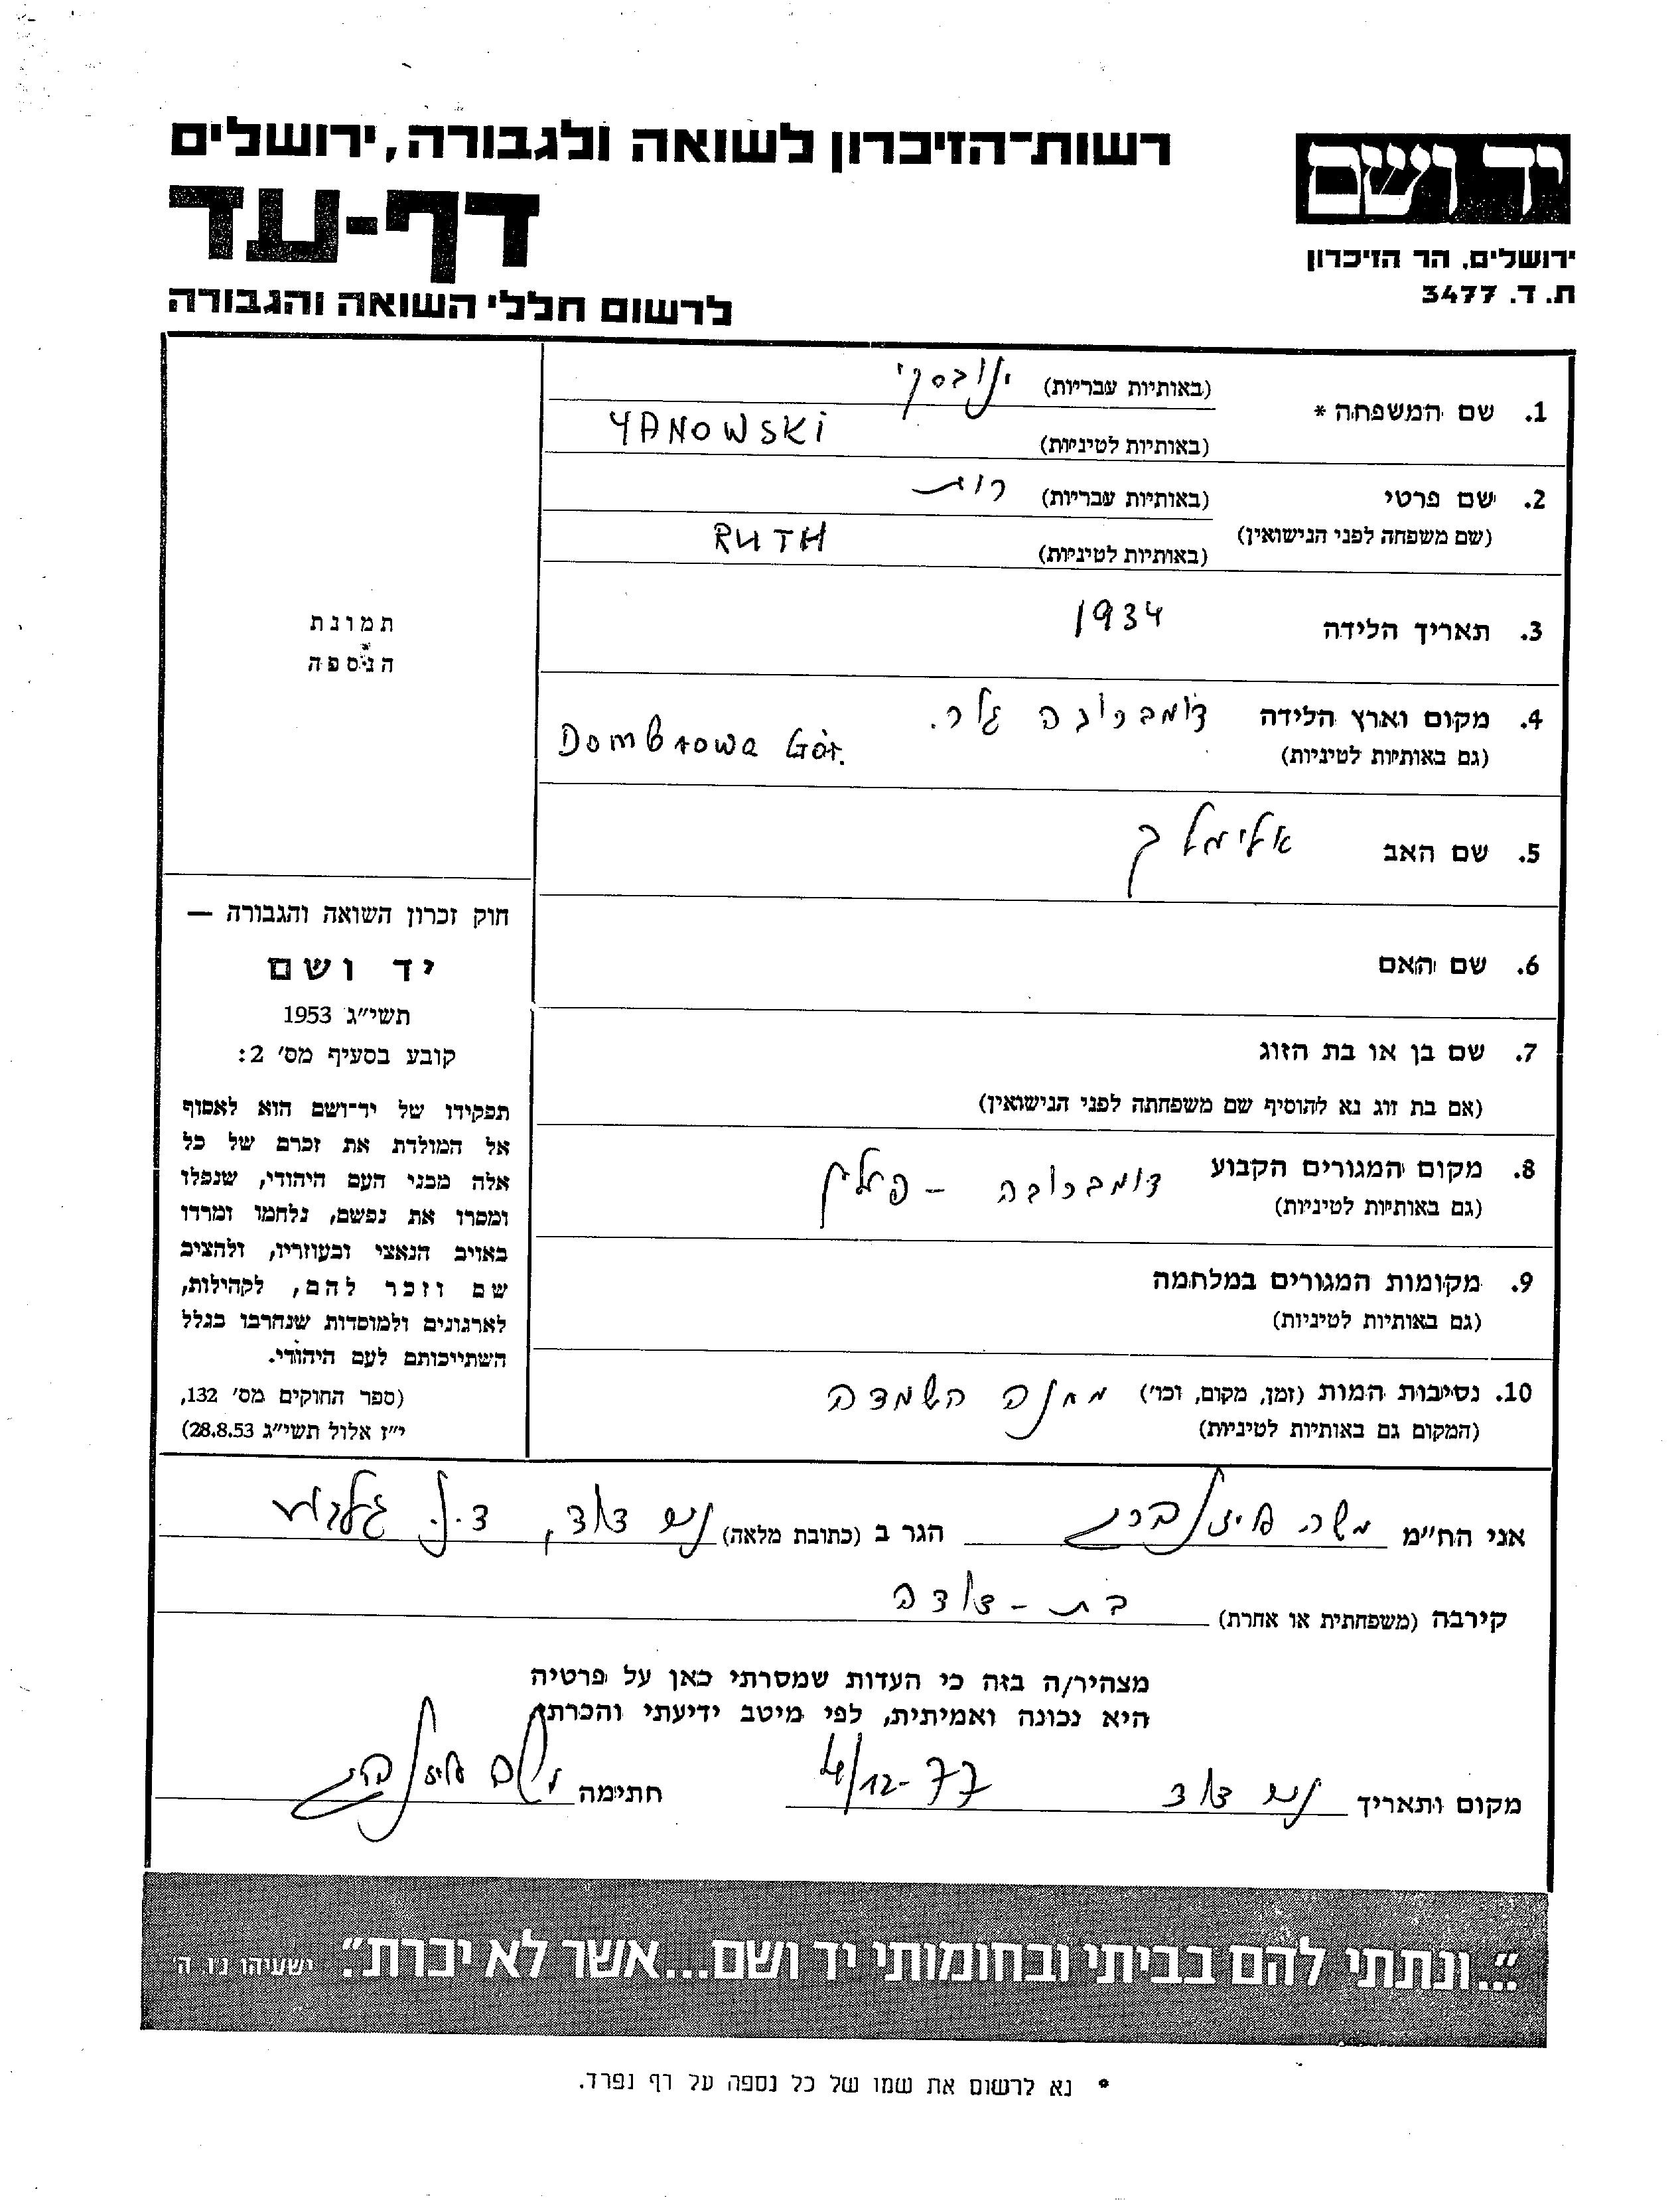 רשות־הזיכרון לשואה ולגבורה, ירושלים
יד ושם
דף-עד
ירושלים, הר הזיכרון
ת.ד. 3477
לרשום חללי השואה והגבורה
1. שם המשפחה * (באותיות עבריות) ינובסקי
(באותיות לטיניות) YANOWSKI
2. שם פרטי (באותיות עבריות) רות
(שם משפחה לפני הנישואין) (באותיות לטיניות) RUTH
3. תאריך הלידה 1934
תמונת
הניספה
4. מקום וארץ הלידה דומברובה גור.
(גם באותיות לטיניות) Dombrowa Gór.
5. שם האב אלימלך
6. שם האם
7. שם בן או בת הזוג
(אם בת זוג נא להוסיף שם משפחתה לפני הנישואין)
8. מקום המגורים הקבוע דומברובה - פולין
(גם באותיות לטיניות)
9. מקומות המגורים במלחמה
(גם באותיות לטיניות)
10. נסיבות המות (זמן, מקום, וכו') מחנה השמדה
(המקום גם באותיות לטיניות)
חוק זכרון השואה והגבורה —
יד ושם
תשי"ג 1953
קובע בסעיף מס' 2:
תפקידו של יד־ושם הוא לאסוף
אל המולדת את זכרם של כל
אלה מבני העם היהודי, שנפלו
ומסרו את נפשם, נלחמו ומרדו
באויב הנאצי ובעוזריו, ולהציב
שם וזכר להם, לקהילות,
לארגונים ולמוסדות שנחרבו בגלל
השתייכותם לעם היהודי.
(ספר החוקים מס' 132,
י"ז אלול תשי"ג 28.8.53)
אני הח"מ משה הגר ב (כתובת מלאה) ד.נ.
קירבה (משפחתית או אחרת) בת-דודה
מצהיר/ה בזה כי העדות שמסרתי כאן על פרטיה
היא נכונה ואמיתית, לפי מיטב ידיעתי והכרתי.
מקום ותאריך 4/12-77 חתימה
"...ונתתי להם בביתי ובחומותי יד ושם...אשר לא יכרת." ישעיהו נ"ו, ה'
* נא לרשום את שמו של כל נספה על דף נפרד.